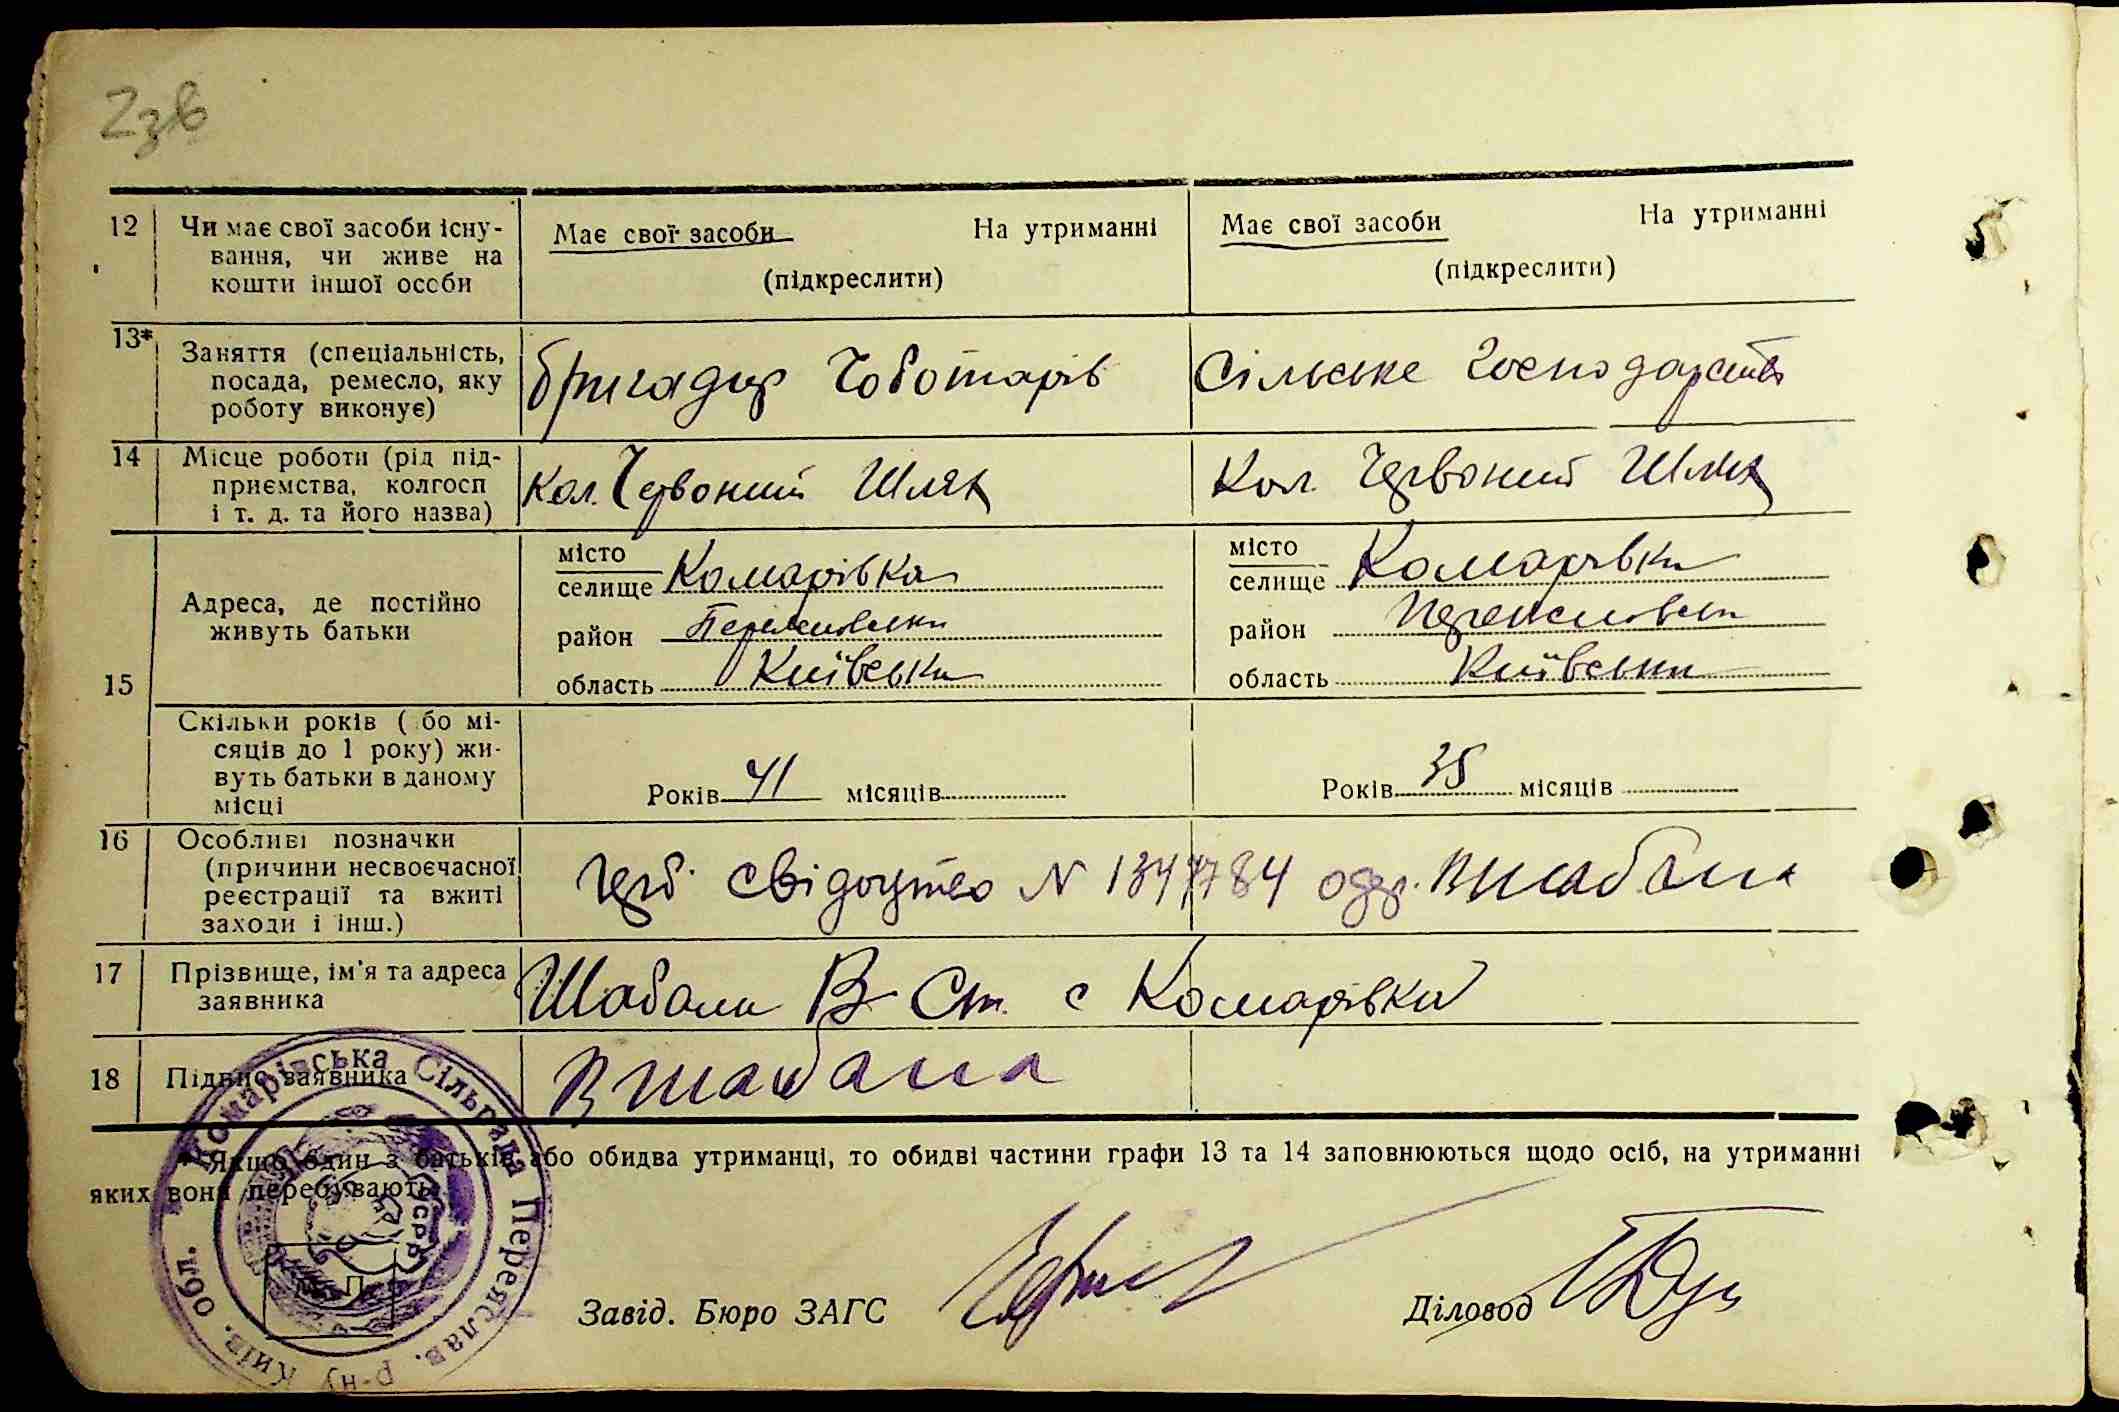 2зв
12 Чи має свої засоби існу- Має свої засоби На утриманні Має свої засоби На утриманні
вання, чи живе на
кошти іншої особи (підкреслити) (підкреслити)
13* Заняття (спеціальність,
посада, ремесло, яку бригадир Чоботарів Сільське Господарство
роботу виконує)
14 Місце роботи (рід під-
приємства, колгосп Кол. Червоний Шлях Кол. Червоний Шлях
і т. д. та його назва)
15 Адреса, де постійно
живуть батьки
місто
селище Комарівка
район Переяславськи
область Київська
місто
селище Комарівка
район Переяславськи
область Київська
Скільки років ( бо мі-
сяців до 1 року) жи-
вуть батьки в даному
місці
Років 41 місяців Років 35 місяців
16 Особливі позначки
(причини несвоєчасної
реєстрації та вжиті
заходи і інш.)
Герб. свідоцтво N 1347784 одер. ВШабала
17 Прізвище, ім'я та адреса
заявника
Шабала В Ст. с Комарівка
18 Підпис заявника ВШабала
* Якщо один з батьків або обидва утриманці, то обидві частини графи 13 та 14 заповнюються щодо осіб, на утриманні
яких вони перебувають.
Комарівська Сільрада Переяслав. р-ну Київ. обл.
УСРР
П.
Завід. Бюро ЗАГС
Діловод